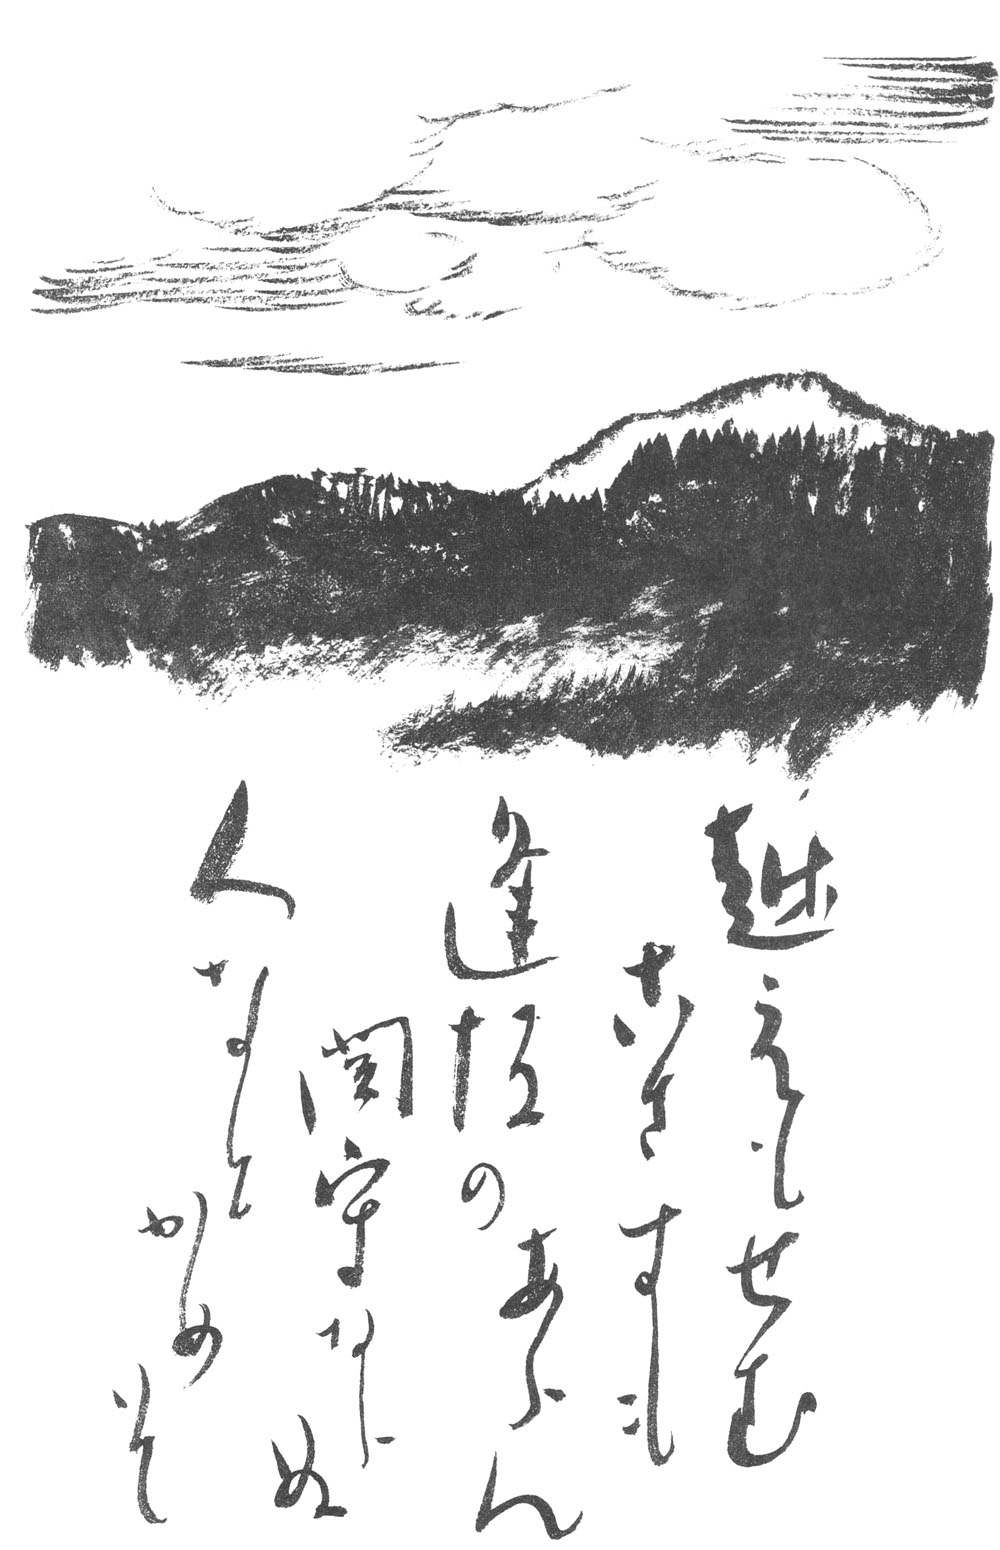 越えもせむ
こさすも
あらん
逢坂の
関守ならぬ
人なとかめそ